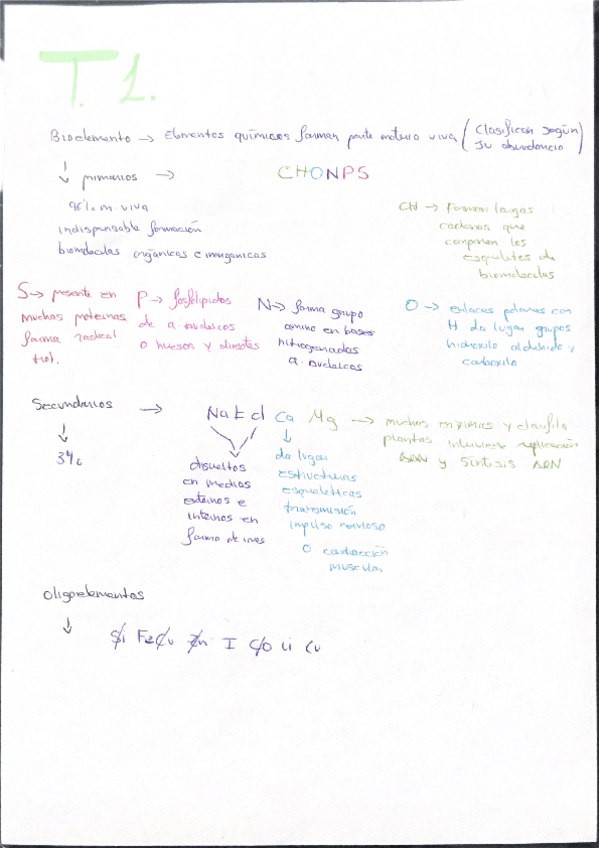 T. 1.
Bioelemento → Elementos químicos forman parte materia viva (Clasifican según
su abundancia)
↓ primarios → CHONPS
96% m viva
indispensable formación
biomoléculas orgánicas e inorgánicas
CH → Forman largas
cadenas que
componen los
esqueletos de
biomoléculas
S → presente en
muchas proteínas
forma radical
tiol.
P → fosfolípidos
de a. nucleicos
o huesos y dientes
N → forma grupo
amino en bases
nitrogenadas
a. nucleicos
O → enlaces polares con
H da lugar grupos
hidroxilo aldehído y
carboxilo
Secundarios → Na K Cl Ca Mg → muchas enzimas y clorofila
plantas, interviene replicación
ADN y síntesis ARN
↓
3%
disueltos
en medios
externos e
internos en
forma de iones
↓
da lugar
estructuras
esqueléticas
transmisión
impulso nervioso
o contracción
muscular
Oligoelementos
↓
Si Fe Cu Zn I Co Li Cu